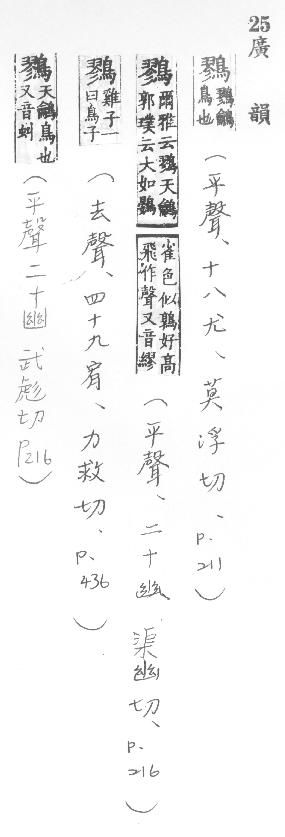 25廣韻
鷚鷚鷚鳥也（平聲、十八尤、莫浮切、p.211）
鷚爾雅云鷚天鸙郭璞云大如鷃雀色似鶉好高飛作聲又音繆（平聲、二十幽、渠幽切、p.216）
鷚雞子一曰鳥子（去聲、四十九宥、力救切、p.436）
鷚天鸙鳥也又音虯（平聲二十幽 武彪切p216）